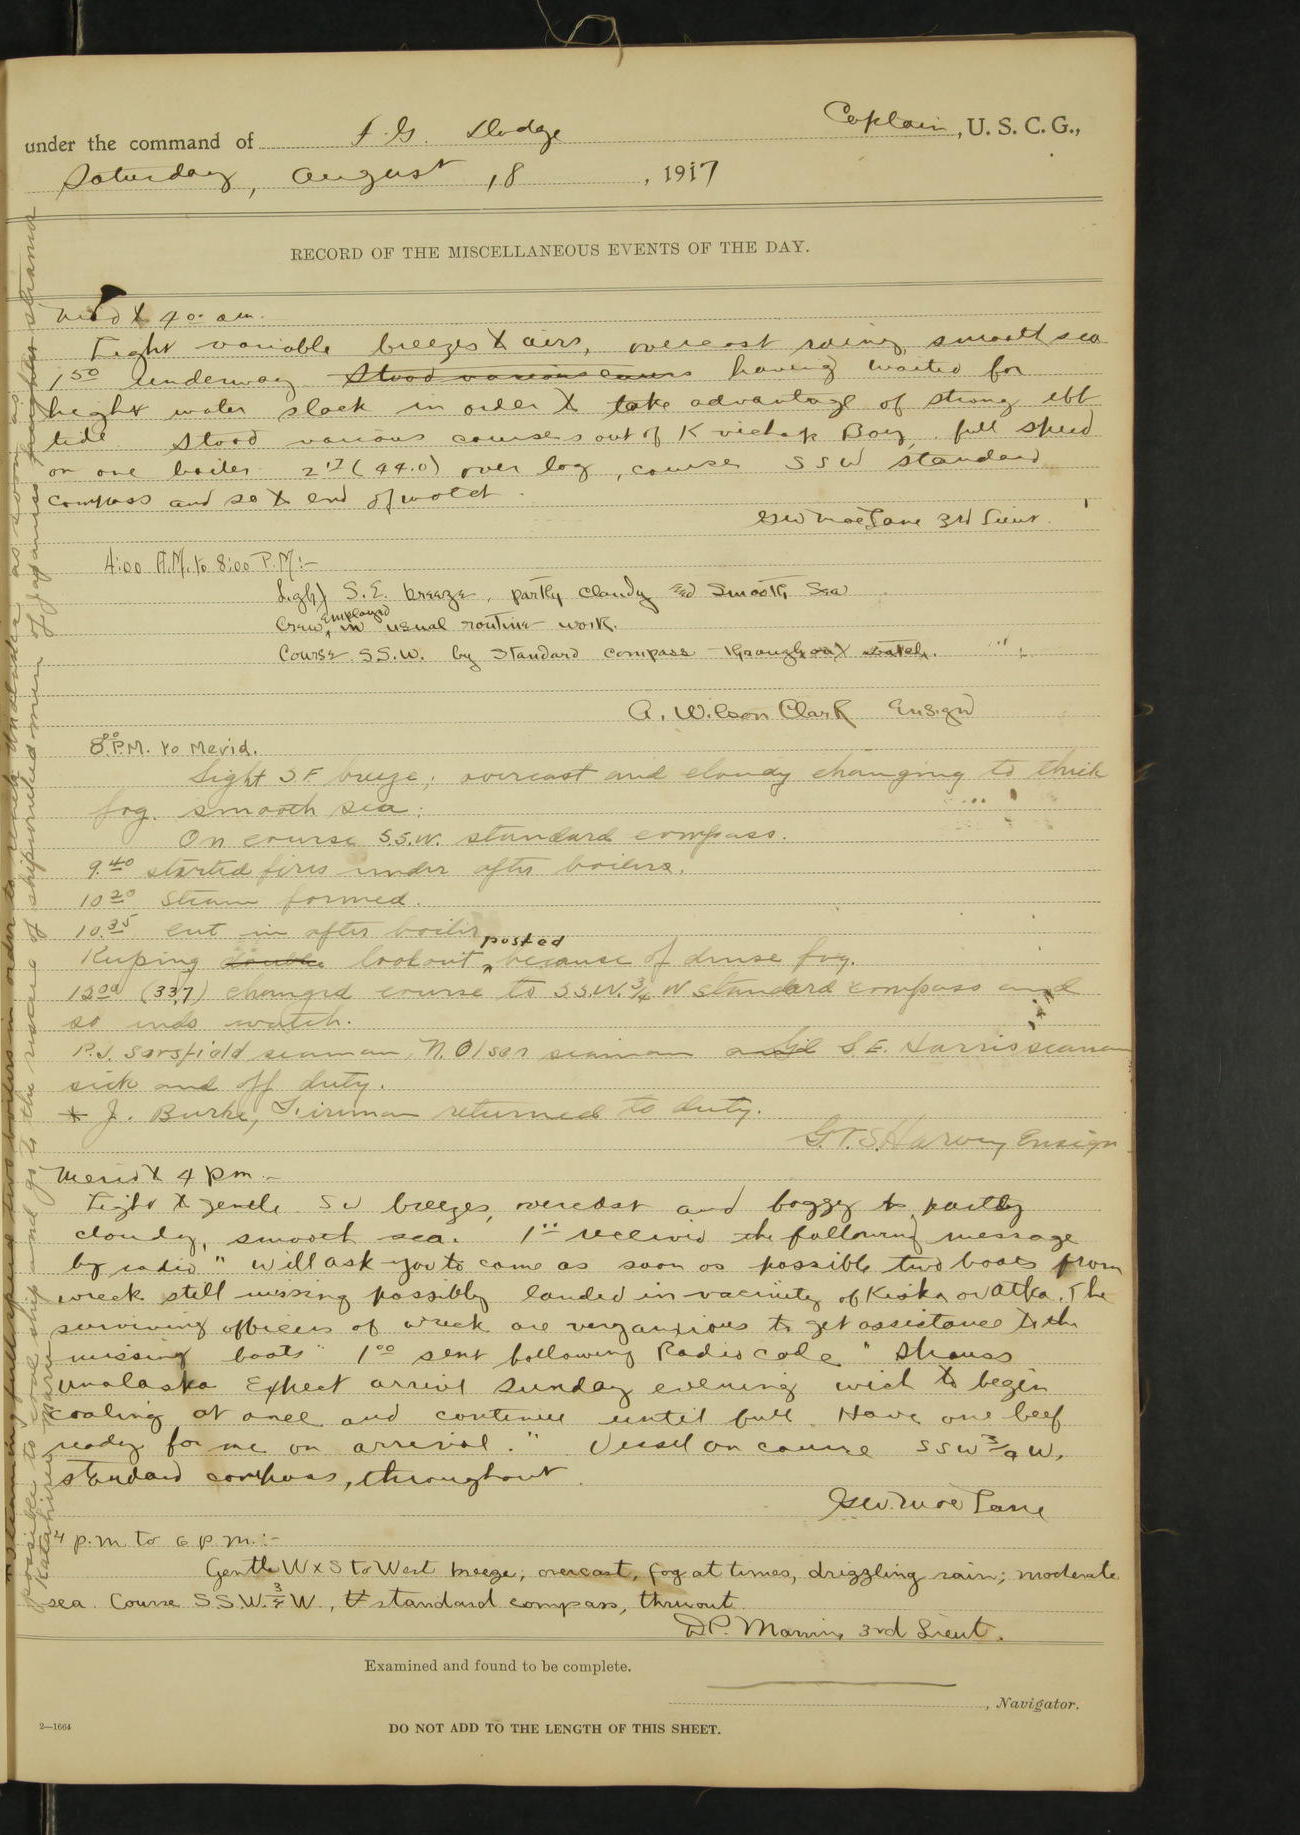 under the command of F. G. Dodge Captain, U. S. C. G.,
Saturday, August 18, 1917
RECORD OF THE MISCELLANEOUS EVENTS OF THE DAY.
Mid to 4 00 am.
Light variable breezes & airs, overcast smooth sea
1 50 underway Stood various courses having waited for
hight water slack in order to take advantage of strong ebb
tide Stood various courses out of Kvichak Bay, full speed
on one boiler 2 17 (44.0) over log, course SSW standard
compass and so to end of watch.
3rd Lieut.
4:00 A.M. to 8:00 P.M:-
Light S.E. breeze, partly cloudy and smooth sea
Crew employed in usual routine work.
Course SS.W. by standard compass throughout watch.
A. Wilson Clark Ensign
8 00 P.M. to Merid.
Light S.E. breeze; overcast and cloudy changing to thick
fog. smooth sea:
On course S.S.W. standard compass.
9 40 started fires under after boilers.
10 20 steam formed.
10 35 cut in after boiler
Keeping double lookout posted because of dense fog.
12 00 (33.7) changed course to S.S.W. 3/4 W standard compass and
so ends watch.
P.J. Sarsfield seaman, N. Olsen seaman and S.E. Harris seaman
sick and off duty.
J. Burke, Fireman returned to duty.
G.T.S. Harvey Ensign
Merid to 4 pm.-
Light to gentle SW breezes, overcast and foggy to partly
cloudy, smooth sea. 1 00 received the following message
by radio "Will ask you to come as soon as possible two boats from
wreck still missing possibly landed in vacinity of Kiska or Atka. The
surviving officers of wreck are very anxious to get assistance to the
missing boats" 1 00 sent following Radio code "Strauss
Unalaska Expect arrive Sunday evening wish to begin
coaling at once and continue until full. Have one beef
ready for me on arrival." Vessel on course SSW 3/4 W.
standard compass, throughout.
4 p.m. to 6 p.m.:-
Gentle W x S to West breeze; overcast, fog at times, drizzling rain; moderate
sea. Course S.S.W. 3/4 W, standard compass, thruout.
3rd Lieut.
Examined and found to be complete.
, Navigator.
2—1664
DO NOT ADD TO THE LENGTH OF THIS SHEET.
Steaming full speed two boilers in order to reach Unalaska as soon as
possible to coal ship and go to the rescue of shipwrecked men of Japanese freighter steamer